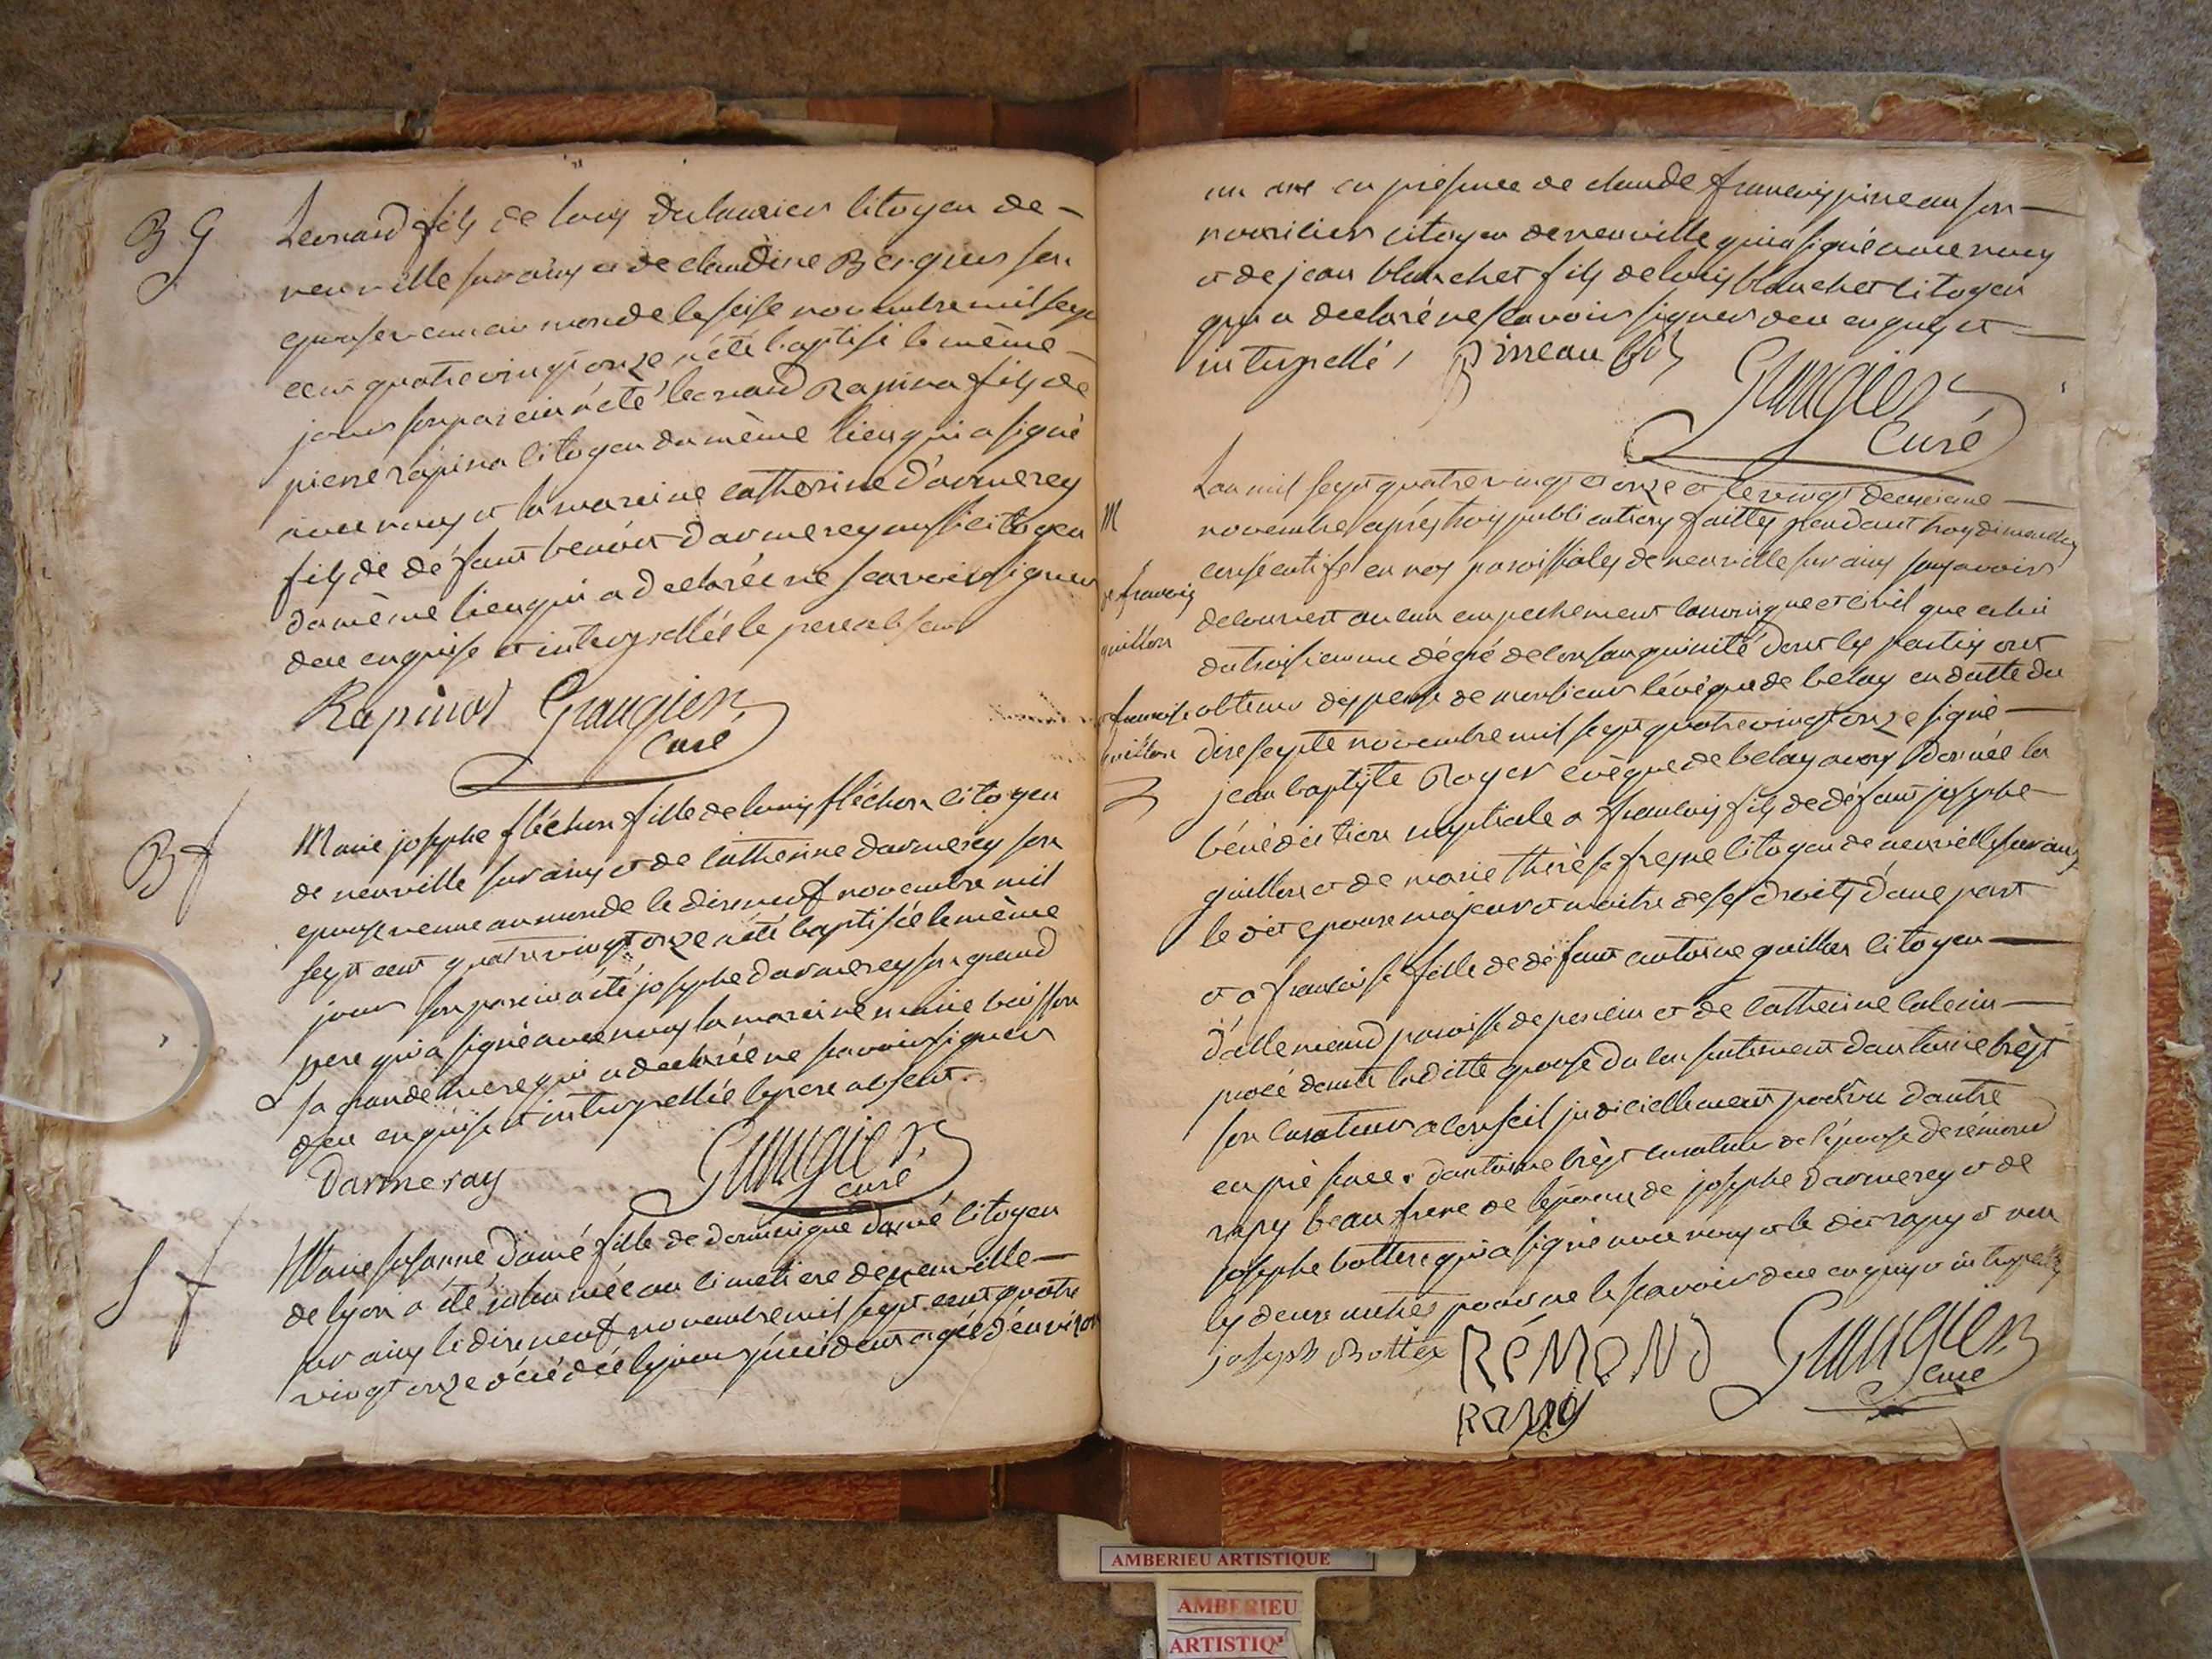 B G
Leonard fils de louis dulaurier citoyen de
neuville sur ains et de claudine Berguer son
epouse venu au monde le seise novembre mil sept
cent quatrevingt onze a été baptisé le même
jour son parein a été leonard Rapina fils de
pierre rapina citoyen du même lieu qui a signé
avec nous et la mareine catherine d'armerey
fils de défunt benoit darmerey aussi citoyen
du même lieu qui a declarée ne scavoir signer
deu enquise et interpellée le pere absent
Rapinot Graugier
Curé
B f
Marie josephe fléchon fille de louis fléchon citoyen
de neuville sur ains et de catherine darmerey son
epouse venue au monde le dixneuf novembre mil
sept cent quatrevingt onze a été baptisée le même
jour son parein a été josephe darmerey son grand
pere qui a signé avec nous la mareine marie buisson
sa grande mere qui a declarée ne savoir signer
deu enquise et interpellée le pere absent
Darmeray Graugier
curé
S f
Marie susanne damé fille de dominique damé citoyen
de lyon a été inhumée au cimetiere de neuville
sur ains le dixneuf novembre mil sept cent quatre
vingt onze décédée le jour précédent agée d'environ
un ans en présence de claude françois pineau son
nourricier citoyen de neuville qui a signé avec nous
et de jean blanchet fils de louis blanchet citoyen
qui a declaré ne scavoir signer deu enquis et
interpellé, Graugier
Curé
M
de françois
guillon
et françoise
guillon
L'an mil sept quatre vingt et onze et le vingt deuxieme
novembre après trois publications faittes pendant trois dimanches
consecutifs en nos paroissiales de neuville sur ains sans avoir
decouvert aucun empechement canonique et civil que celui
du troisieme dégré de consanguinité dont les parties ont
obtenus dispense de monsieur l'évêque de belay en datte du
dixsepte novembre mil sept quatrevingt onze signé
jean baptiste Royer evêque de belay avons donnée la
bénédiction nuptiale a françois fils de défunt josephe
guillon et de marie thérèse fresne citoyen de neuville sur ains
le dit epoux majeur et maitre de ses droits d'une part
et a françoise fille de défunt antoine guillon citoyen
d'allemend paroisse de poncin et de catherine
procédante laditte epouse du consentement d'antoine
son curateur a conseil judiciellement pourvu d'autre
en présence d'antoine curateur de l'épouse de rémond
rapy beau frere de l'epoux de josephe darmerey et de
josephe bottex qui a signé avec nous et le dit rapy et non
les deux autres pour ne le scavoir deu enquis et interpellés
joseph Bottex RéMOND Graugier
curé
RaPy
AMBERIEU ARTISTIQUE
AMBERIEU
ARTISTIQ